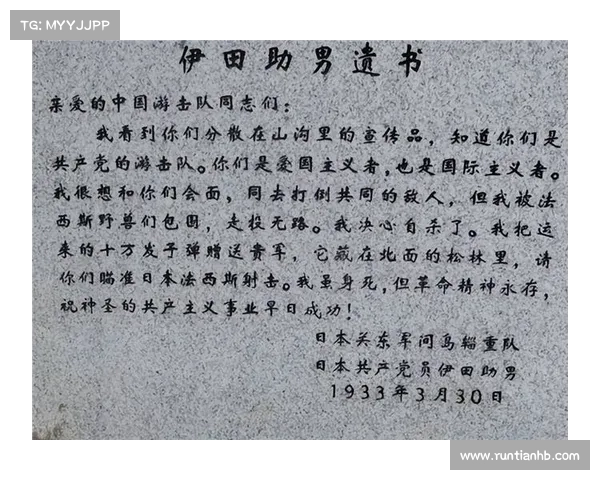 TG: MYYJJPP
伊田助男遗书
亲爱的中国游击队同志们：
我看到你们分散在山沟里的宣传品，知道你们是
共产党的游击队。你们是爱国主义者，也是国际主义者。
我很想和你们会面，同去打倒共同的敌人，但我被法
西斯野兽们包围，走投无路。我决心自杀了。我把运
来的十万发子弹赠送贵军，它藏在北面的松林里，请
你们瞄准日本法西斯射击。我虽身死，但革命精神永存，
祝神圣的共产主义事业早日成功！
日本关东军间岛辎重队
日本共产党员伊田助男
1933年3月30日
www.runtianhb.com